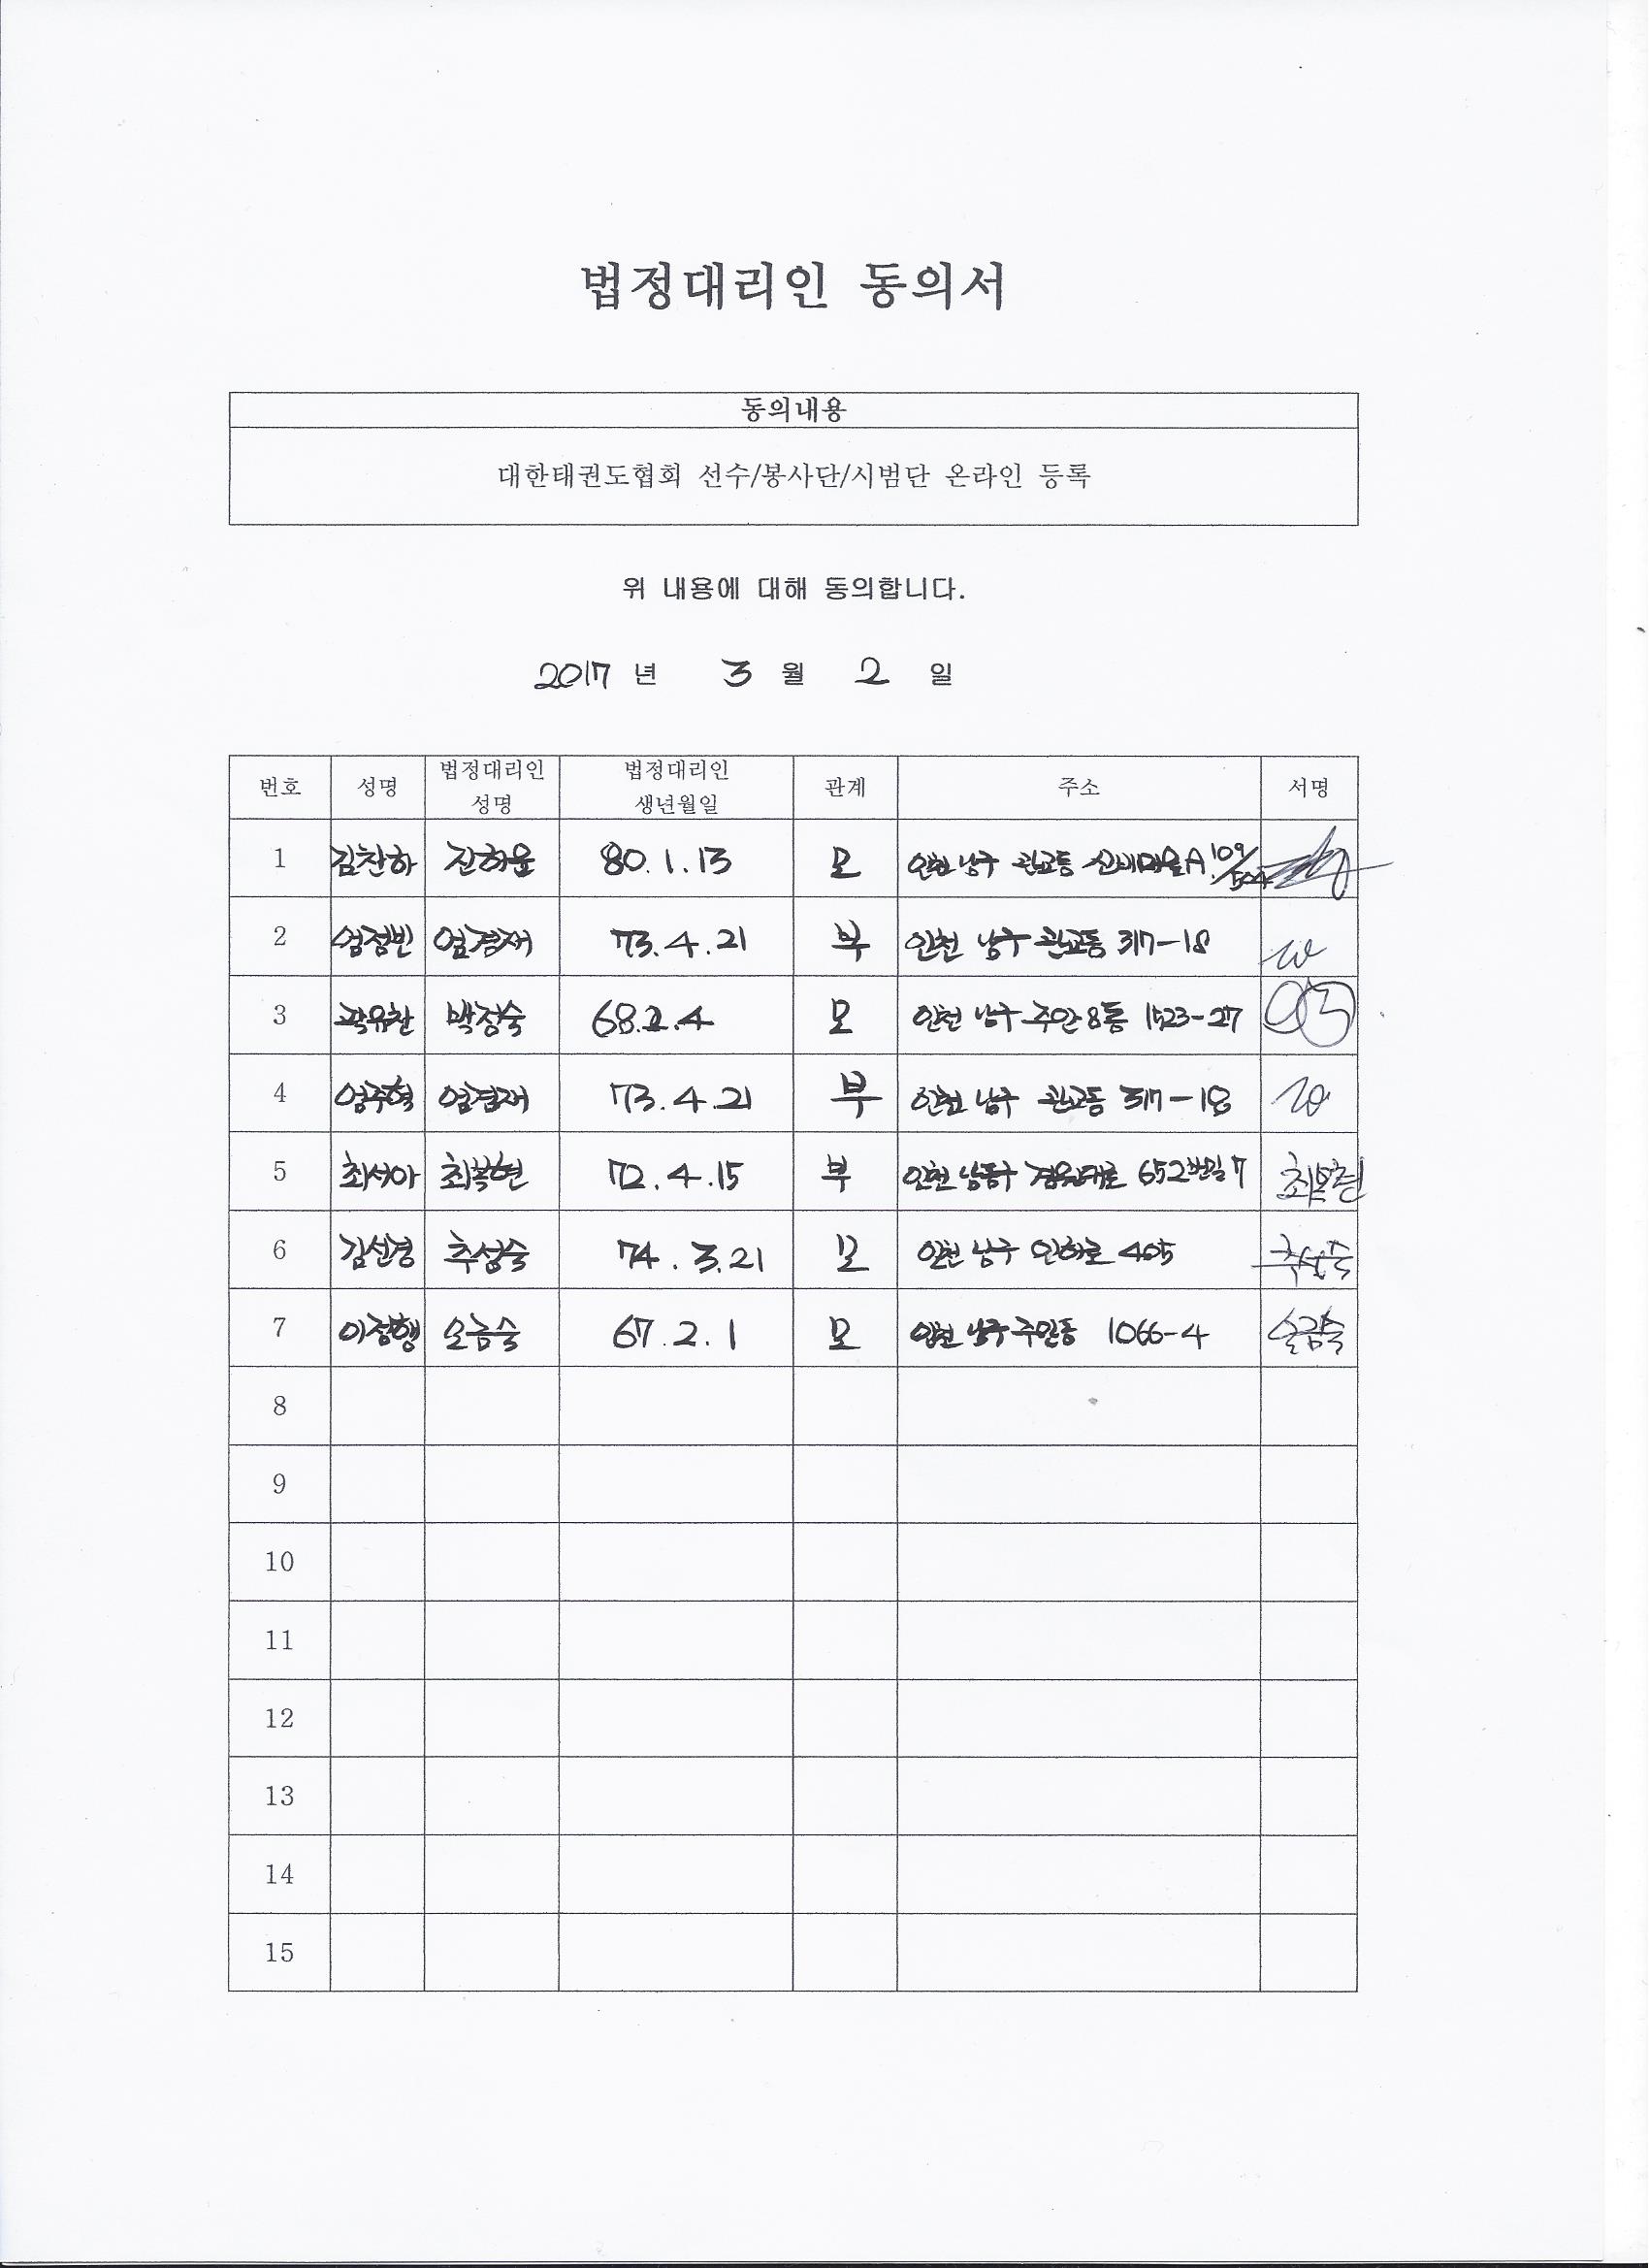 법정대리인 동의서
동의내용
대한태권도협회 선수/봉사단/시범단 온라인 등록
위 내용에 대해 동의합니다.
2017 년 3 월 2 일
번호 성명 법정대리인 성명 법정대리인 생년월일 관계 주소 서명
1 김찬하 진하윤 80.1.13 모 인천 남구 관교동 A 109/504
2 엄점빈 엄경재 73.4.21 부 인천 남구 관교동 317-18
3 곽유찬 박정숙 68.2.4 모 인천 남구 주안8동 1523-27
4 엄주혁 엄경재 73.4.21 부 인천 남구 관교동 317-18
5 최서아 최복현 72.4.15 부 인천 남동구 경원대로 652번길 7 최복현
6 김선경 추성숙 74.3.21 모 인천 남구 인하로 405 추성숙
7 이정행 오금숙 67.2.1 모 인천 남구 주안동 1066-4 오금숙
8
9
10
11
12
13
14
15